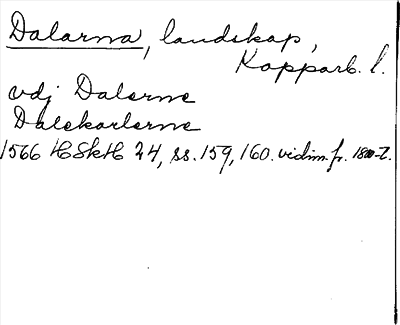 Dalarna, landskap,
Kopparb. l.
udj Dalerne
Dalekarlerne
1566 HSkH 34, ss. 159, 160. vidim. fr. 1800-t.